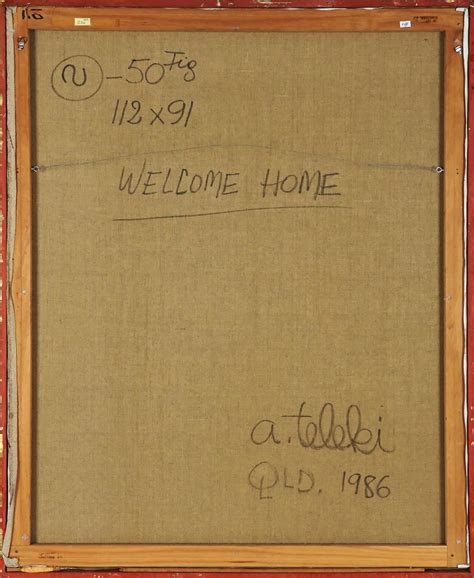 2 -50 Fig
112x91
WELCOME HOME
a.teleki
QLD. 1986